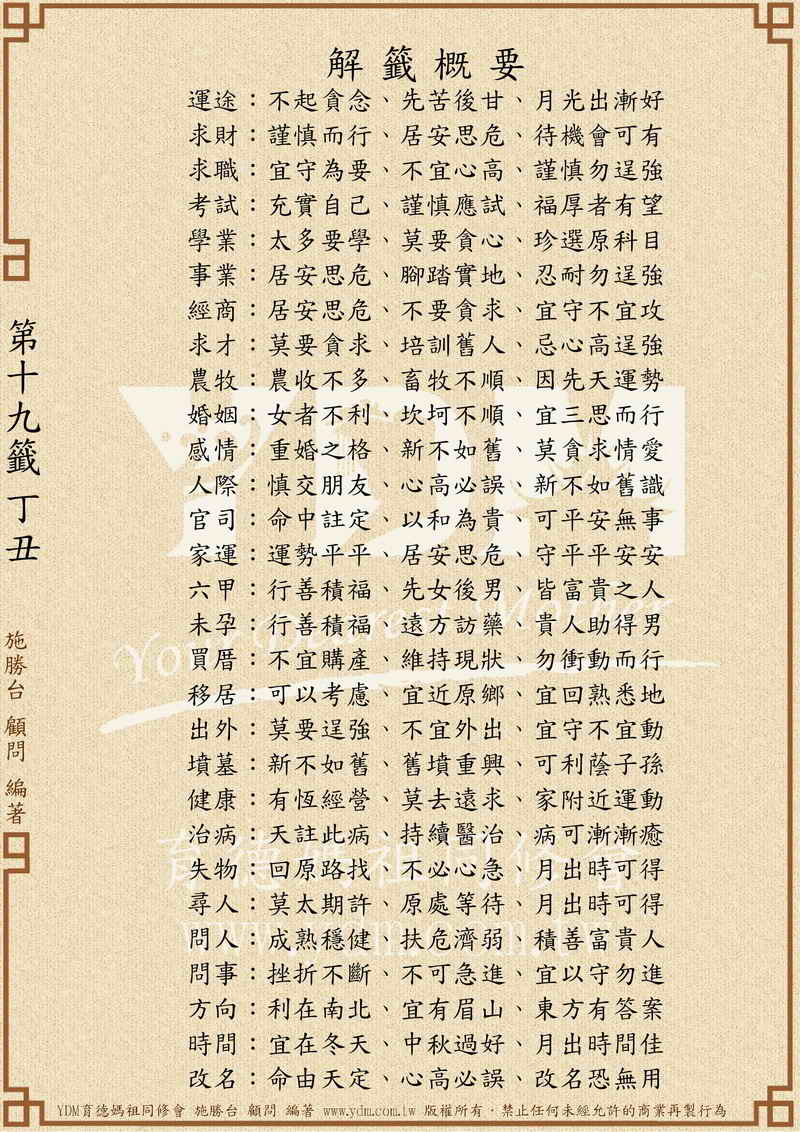 解籤概要
運途：不起貪念、先苦後甘、月光出漸好
求財：謹慎而行、居安思危、待機會可有
求職：宜守為要、不宜心高、謹慎勿逞強
考試：充實自己、謹慎應試、福厚者有望
學業：太多要學、莫要貪心、珍選原科目
事業：居安思危、腳踏實地、忍耐勿逞強
經商：居安思危、不要貪求、宜守不宜攻
求才：莫要貪求、培訓舊人、忌心高逞強
農牧：農收不多、畜牧不順、因先天運勢
婚姻：女者不利、坎坷不順、宜三思而行
感情：重婚之格、新不如舊、莫貪求情愛
人際：慎交朋友、心高必誤、新不如舊識
官司：命中註定、以和為貴、可平安無事
家運：運勢平平、居安思危、守平平安安
六甲：行善積福、先女後男、皆富貴之人
未孕：行善積福、遠方訪藥、貴人助得男
買厝：不宜購產、維持現狀、勿衝動而行
移居：可以考慮、宜近原鄉、宜回熟悉地
出外：莫要逞強、不宜外出、宜守不宜動
墳墓：新不如舊、舊墳重興、可利蔭子孫
健康：有恆經營、莫去遠求、家附近運動
治病：天註此病、持續醫治、病可漸漸癒
失物：回原路找、不必心急、月出時可得
尋人：莫太期許、原處等待、月出時可得
問人：成熟穩健、扶危濟弱、積善富貴人
問事：挫折不斷、不可急進、宜以守勿進
方向：利在南北、宜有眉山、東方有答案
時間：宜在冬天、中秋過好、月出時間佳
改名：命由天定、心高必誤、改名恐無用
第十九籤 丁丑
施勝台 顧問 編著
YDM
Your Dearest Mother
育德媽祖同修會
www.ydm.com.tw
YDM育德媽祖同修會 施勝台 顧問 編著 www.ydm.com.tw 版權所有‧禁止任何未經允許的商業再製行為